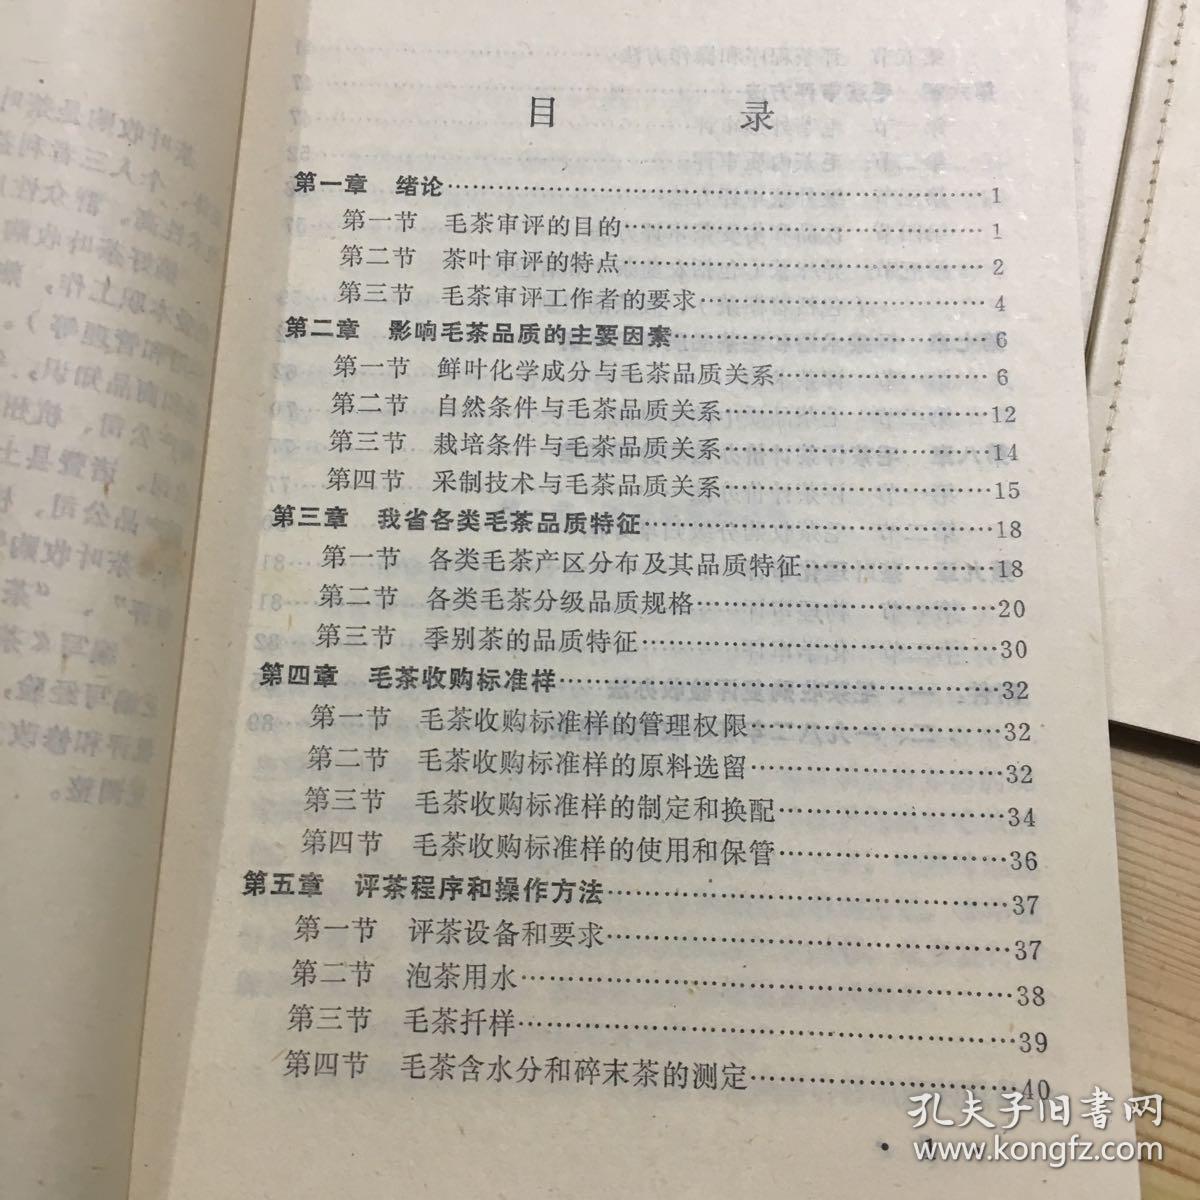 目 录
第一章 绪论……1
第一节 毛茶审评的目的……1
第二节 茶叶审评的特点……2
第三节 毛茶审评工作者的要求……4
第二章 影响毛茶品质的主要因素……6
第一节 鲜叶化学成分与毛茶品质关系……6
第二节 自然条件与毛茶品质关系……12
第三节 栽培条件与毛茶品质关系……14
第四节 采制技术与毛茶品质关系……15
第三章 我省各类毛茶品质特征……18
第一节 各类毛茶产区分布及其品质特征……18
第二节 各类毛茶分级品质规格……20
第三节 季别茶的品质特征……30
第四章 毛茶收购标准样……32
第一节 毛茶收购标准样的管理权限……32
第二节 毛茶收购标准样的原料选留……32
第三节 毛茶收购标准样的制定和换配……34
第四节 毛茶收购标准样的使用和保管……36
第五章 评茶程序和操作方法……37
第一节 评茶设备和要求……37
第二节 泡茶用水……38
第三节 毛茶扦样……39
第四节 毛茶含水分和碎末茶的测定……40
· 1
孔夫子旧书网
www.kongfz.com